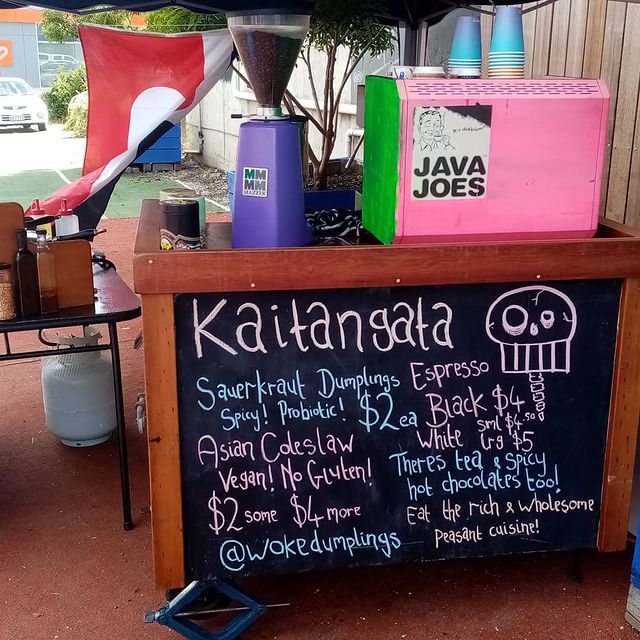 It's delicious!
JAVA
JOES
MM
MM
MAZZER
Kaitangata
Sauerkraut Dumplings
Spicy! Probiotic! $2ea
Asian Coleslaw
Vegan! No Gluten!
$2 some $4 more
@wokedumplings
Espresso
Black $4
White sml $4.50
lrg $5
Theres tea & spicy
hot chocolates too!
Eat the rich & wholesome
Peasant cuisine!